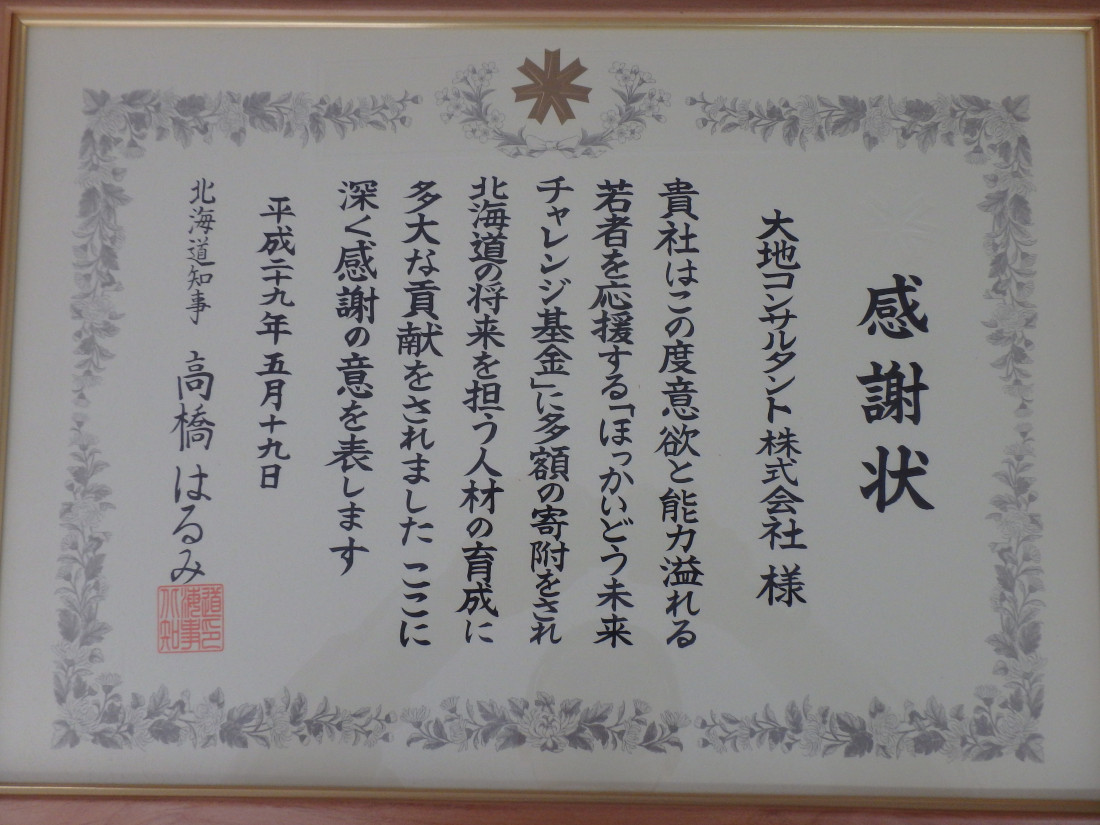 感謝状
大地コンサルタント株式会社 様
貴社はこの度意欲と能力溢れる
若者を応援する「ほっかいどう未来
チャレンジ基金」に多額の寄附をされ
北海道の将来を担う人材の育成に
多大な貢献をされました ここに
深く感謝の意を表します
平成二十九年五月十九日
北海道知事 高橋はるみ